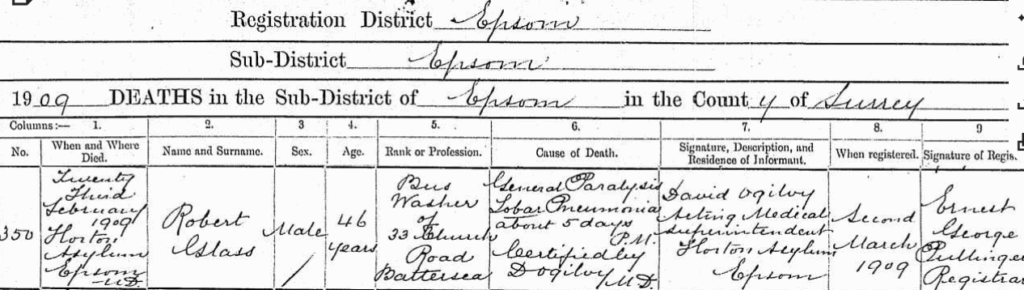 Registration District Epsom
Sub-District Epsom
1909 DEATHS in the Sub-District of Epsom in the County of Surrey
Columns:— 1. 2. 3 4. 5. 6. 7. 8. 9
No. When and Where Died. Name and Surname. Sex. Age. Rank or Profession. Cause of Death. Signature, Description, and Residence of Informant. When registered. Signature of Regis.
350
Twenty
Third
February
1909
Horton
Asylum
Epsom
U.D.
Robert
Glass
Male
46
years
Bus
Washer
of
33 Church
Road
Battersea
General Paralysis
Lobar Pneumonia
about 5 days
P.M.
Certified by
D Ogilvy M.D.
David Ogilvy
Acting Medical
Superintendent
Horton Asylum
Epsom
Second
March
1909
Ernest
George
Pullinger
Registrar